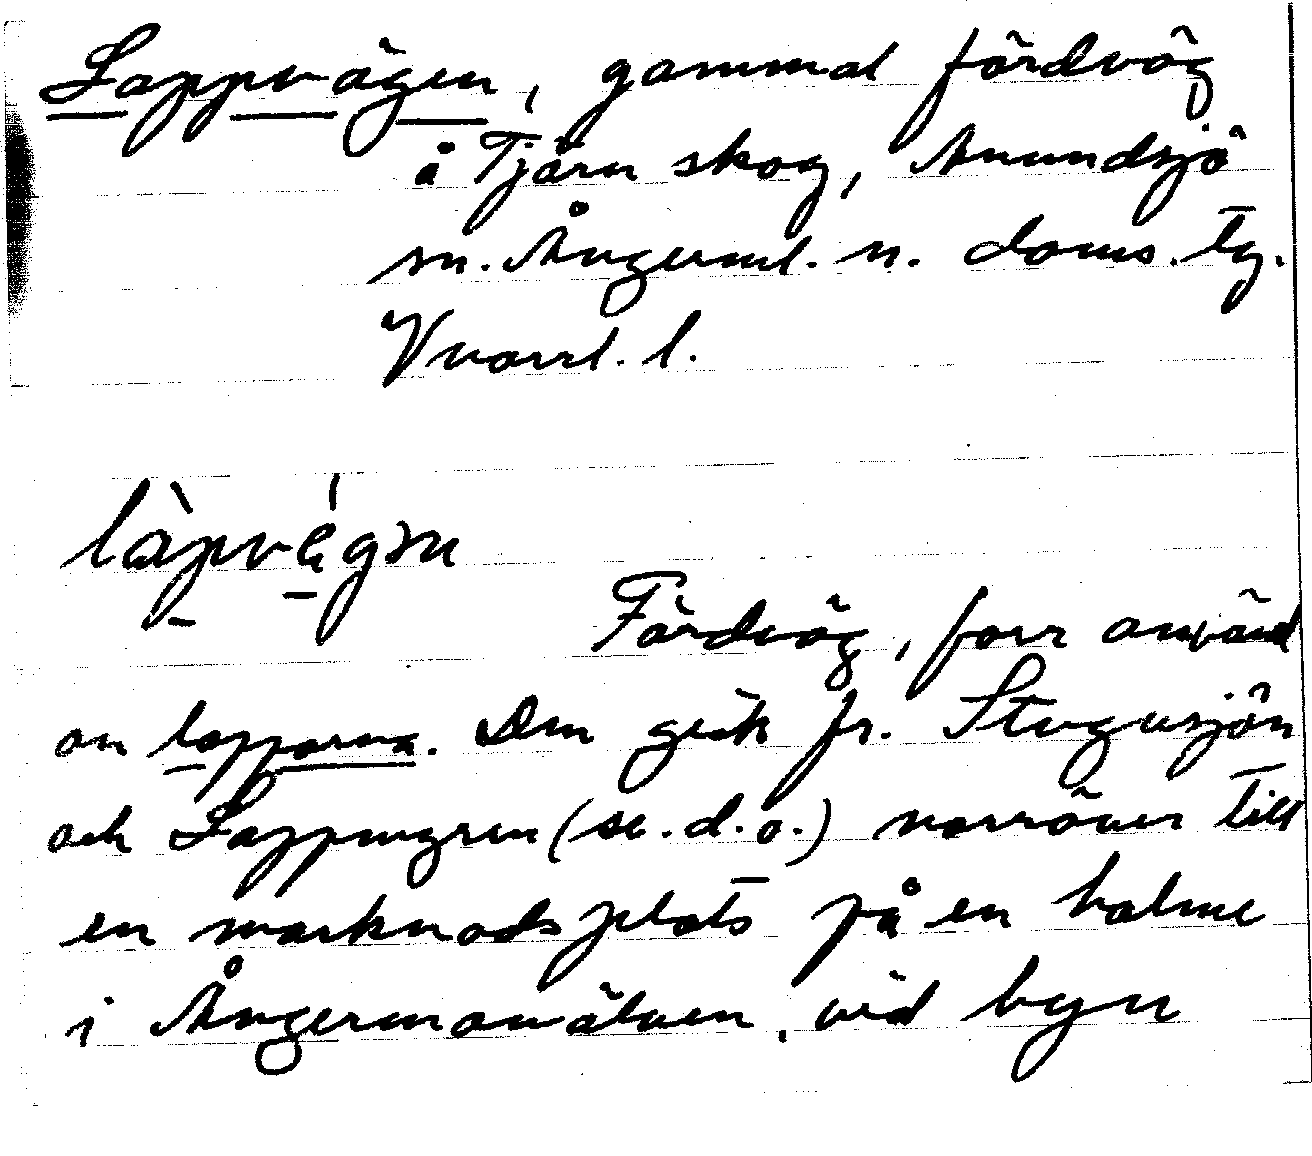 Lappvägen, gammal färdväg
å Tjärn skog, Anundsjö
sn. Ångerml. n. doms. tg.
Vnorrl. l.
làpvégən
Färdväg, förr använd
an lapparna. Den gick fr. Stugusjön
och Lappungren (se. d. o.) norröver till
en marknadsplats på en holme
i Ångermanälven, vid byn